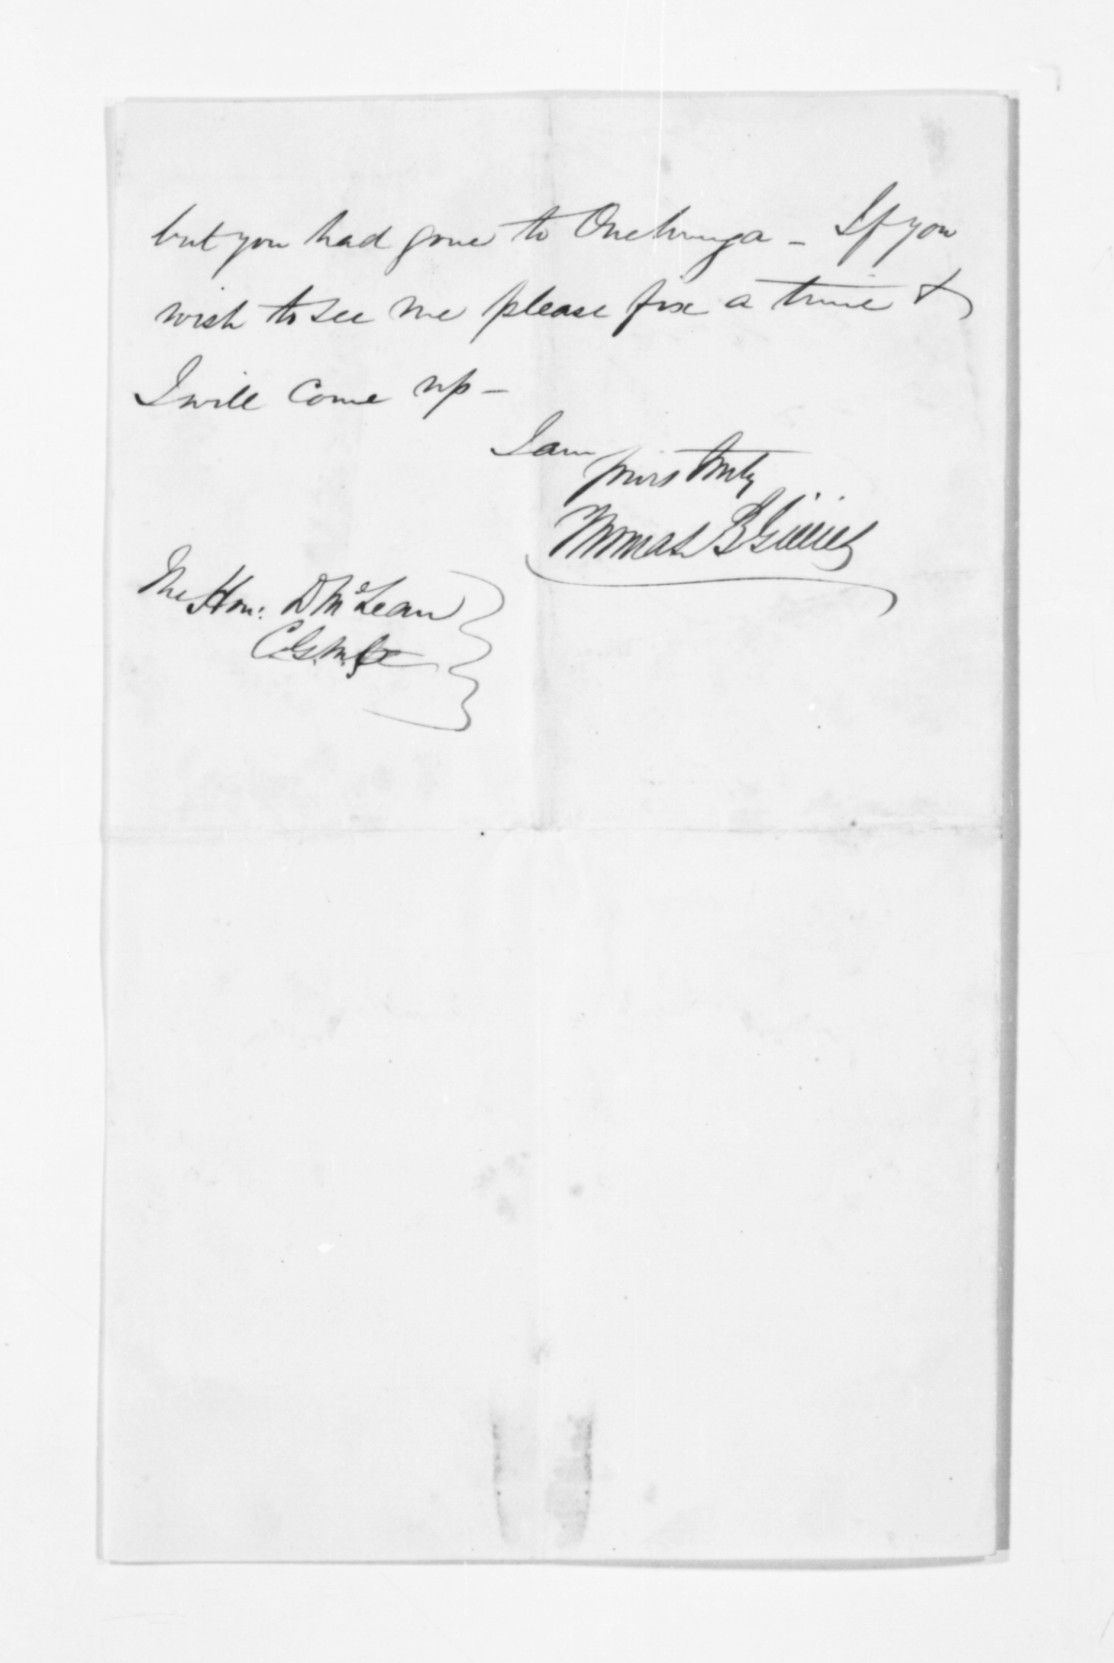 but you had gone to Onehunga – If you
wish to see me please fix a time &
I will come up –
I am
yours truly
Thomas B Gillies
The Hon: D McLean
C.G.M.G &c